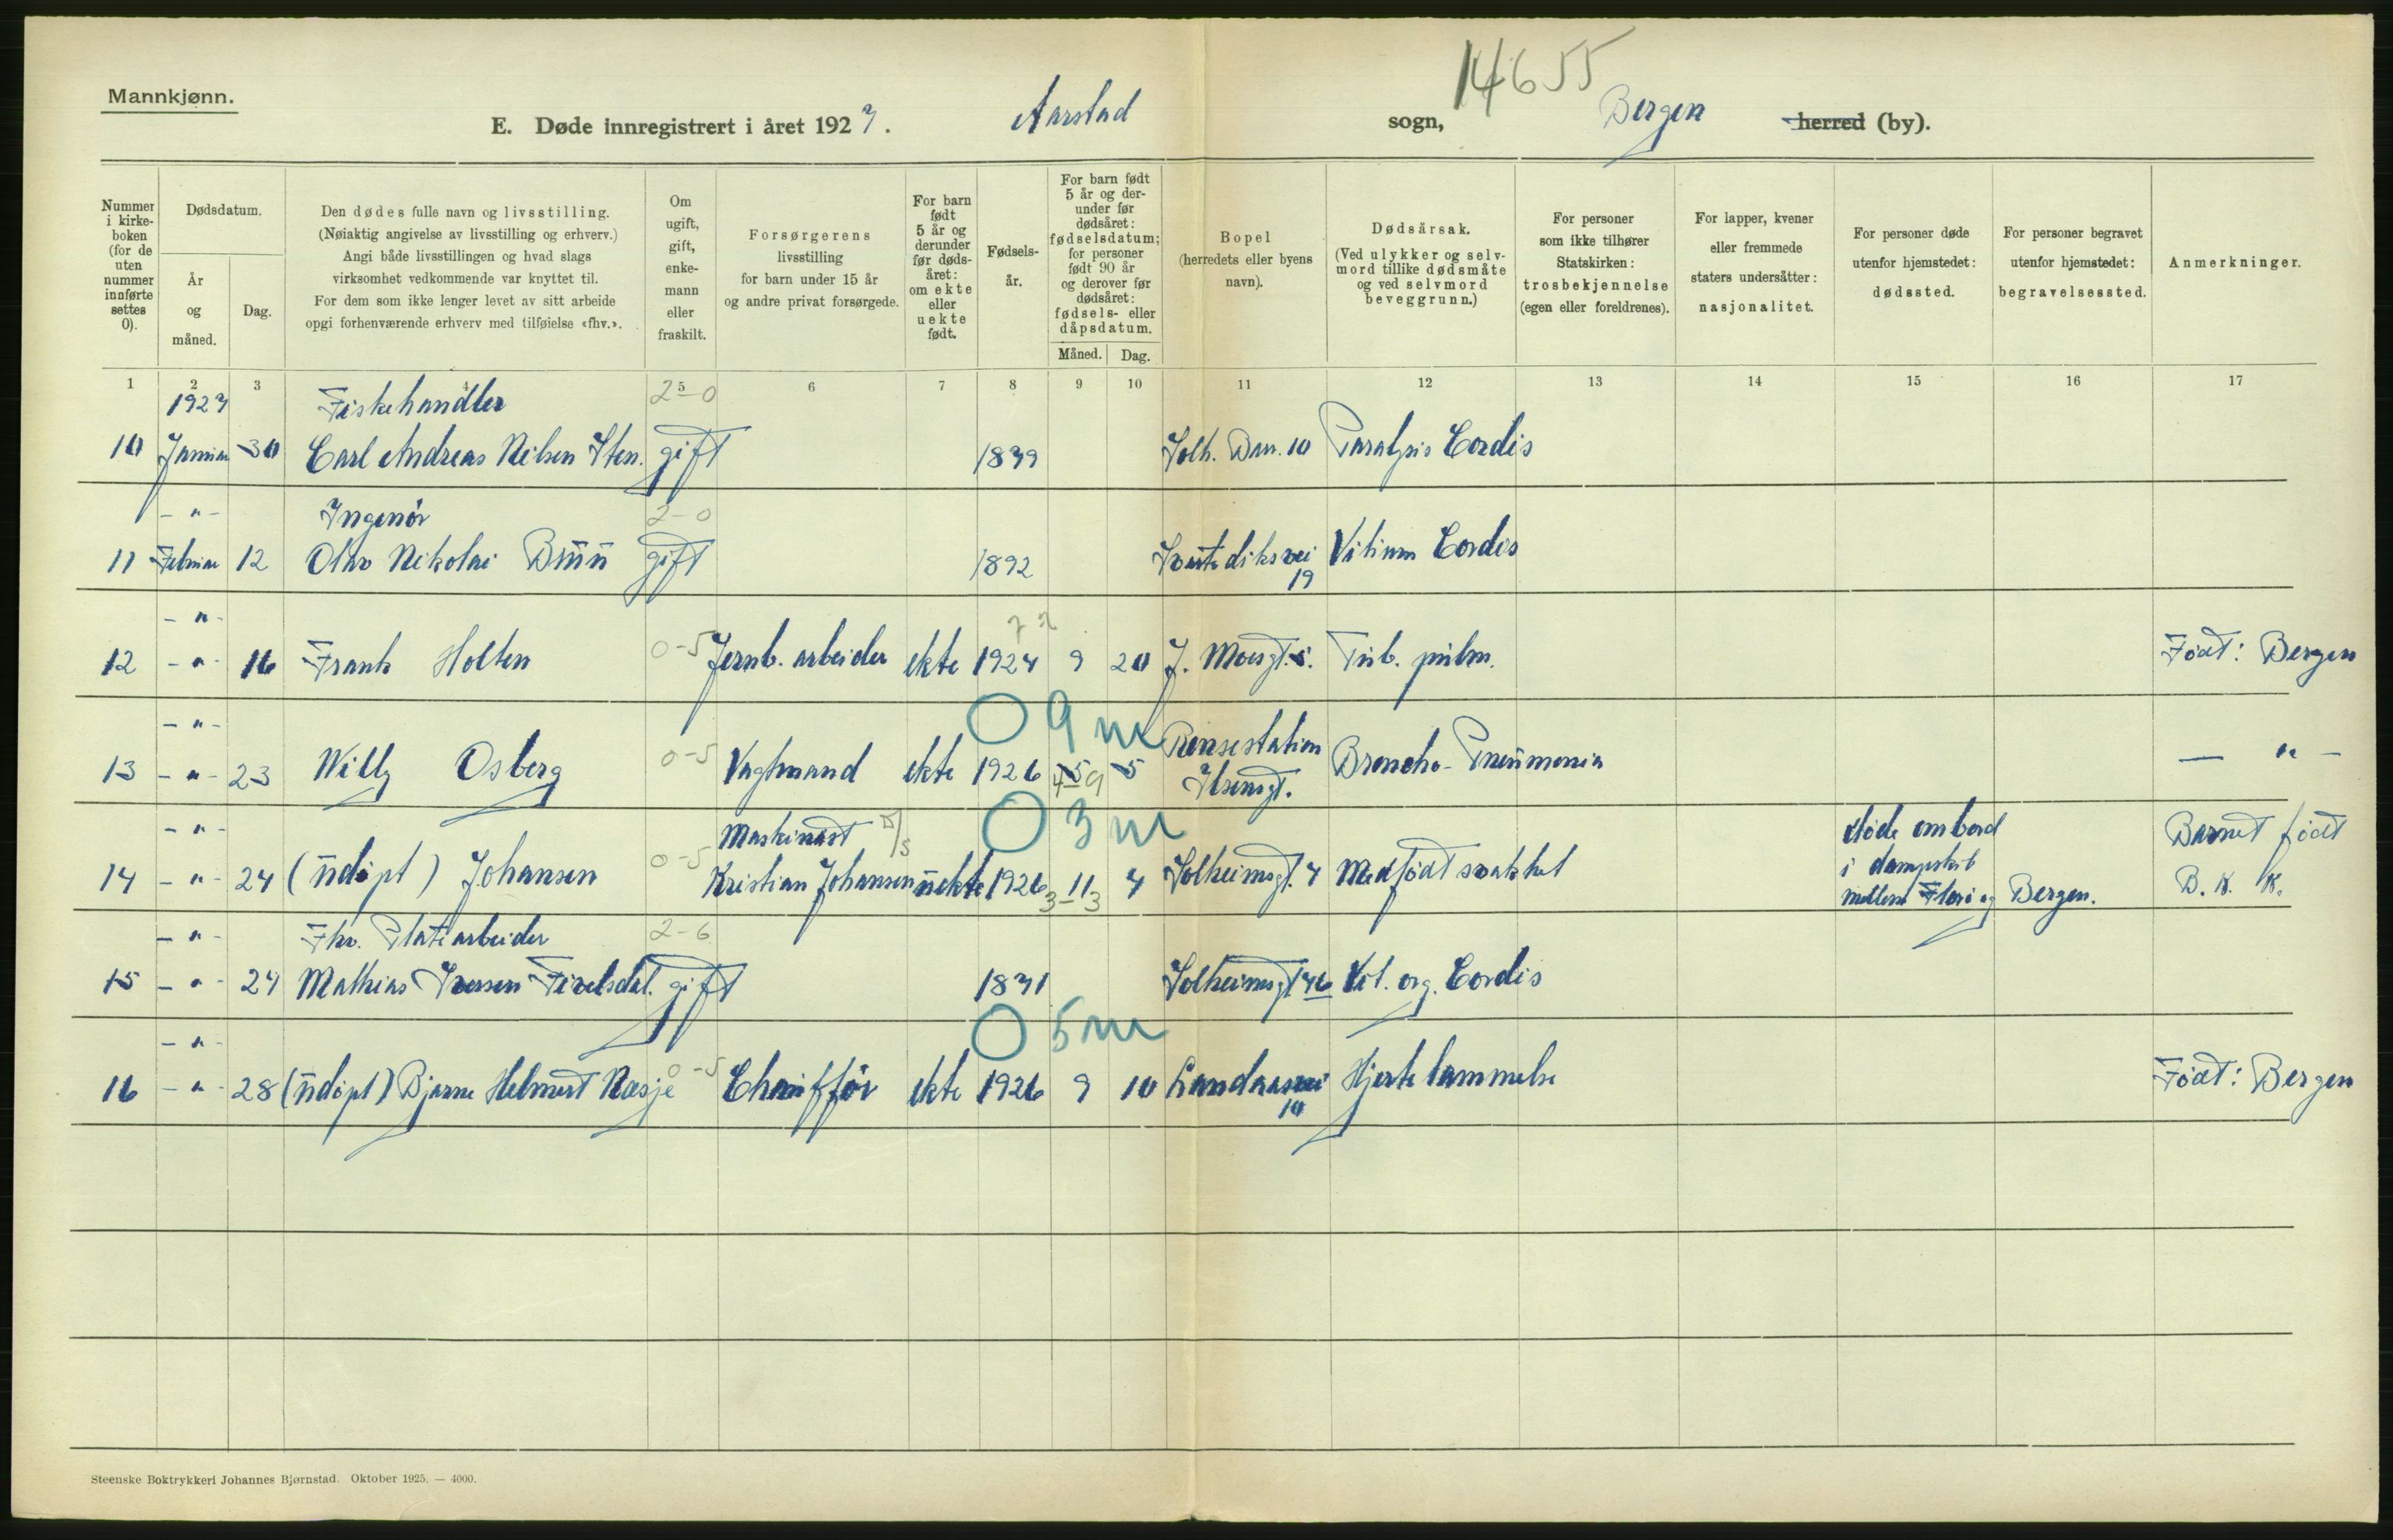 Mannkjønn.
14655
E. Døde innregistrert i året 1927. Aarstad sogn, Bergen herred (by).
Nummer i kirke-boken (for de uten nummer innførte settes 0).
Dødsdatum.
År og måned.
Dag.
Den dødes fulle navn og livsstilling.
(Nøiaktig angivelse av livsstilling og erhverv.)
Angi både livsstillingen og hvad slags
virksomhet vedkommende var knyttet til.
For dem som ikke lenger levet av sitt arbeide
opgi forhenværende erhverv med tilføielse «fhv.».
Om ugift, gift, enke-mann eller fraskilt.
Forsørgerens
livsstilling
for barn under 15 år
og andre privat forsørgede.
For barn født 5 år og derunder før døds-året: om ekte eller uekte født.
Fødsels-år.
For barn født 5 år og der-under før dødsåret: fødselsdatum; for personer født 90 år og derover før dødsåret: fødsels- eller dåpsdatum.
Måned. Dag.
Bopel
(herredets eller byens
navn).
Dødsårsak.
(Ved ulykker og selv-
mord tillike dødsmåte
og ved selvmord
beveggrunn.)
For personer
som ikke tilhører
Statskirken:
trosbekjennelse
(egen eller foreldrenes).
For lapper, kvener
eller fremmede
staters undersåtter:
nasjonalitet.
For personer døde
utenfor hjemstedet:
dødssted.
For personer begravet
utenfor hjemstedet:
begravelsessted.
Anmerkninger.
1 2 3 4 5 6 7 8 9 10 11 12 13 14 15 16 17
1927 Fiskehandler 2-0
10 Januar 30 Carl Andreas Nilsen Sten. gift 1839 Solh. 10 Paralysis Cordis
-"- Ingenør 2-0
11 Februar 12 Olav Nikolai Brun gift 1892 19 Vitium Cordis
-"-
12 -"- 16 Frank Holten 0-5 Jernb. arbeider ekte 1924 9 20 J. Moesgt. Tub. pulm. Født: Bergen
-"- 0 9 m Rensestation
13 -"- 23 Willy Osberg 0-5 Vagtmand ekte 1926 5 5 Ibsensgt. Broncho-Pneumonia — " —
4-9
-"- Maskinist D/S 0 3 m døde ombord Barnet født
14 -"- 24 (udøpt) Johansen 0-5 Kristian Johansen uekte 1926 11 7 Solheimsgt. 7 Medfødt svakhet i dampskib B. K. K.
3-3 mellem Florø og Bergen.
-"- Fhv. 2-6
15 -"- 24 Mathias Iversen gift 1831 Solheimsgt 46 Vit. org. Cordis
-"- 0 5 m
16 -"- 28 (udøpt) Bjarne Helmert Næsje 0-5 Chauffør ekte 1926 9 10 Landaasvei 10 Hjertelammelse Født: Bergen
Steenske Boktrykkeri Johannes Bjørnstad. Oktober 1925. — 4000.